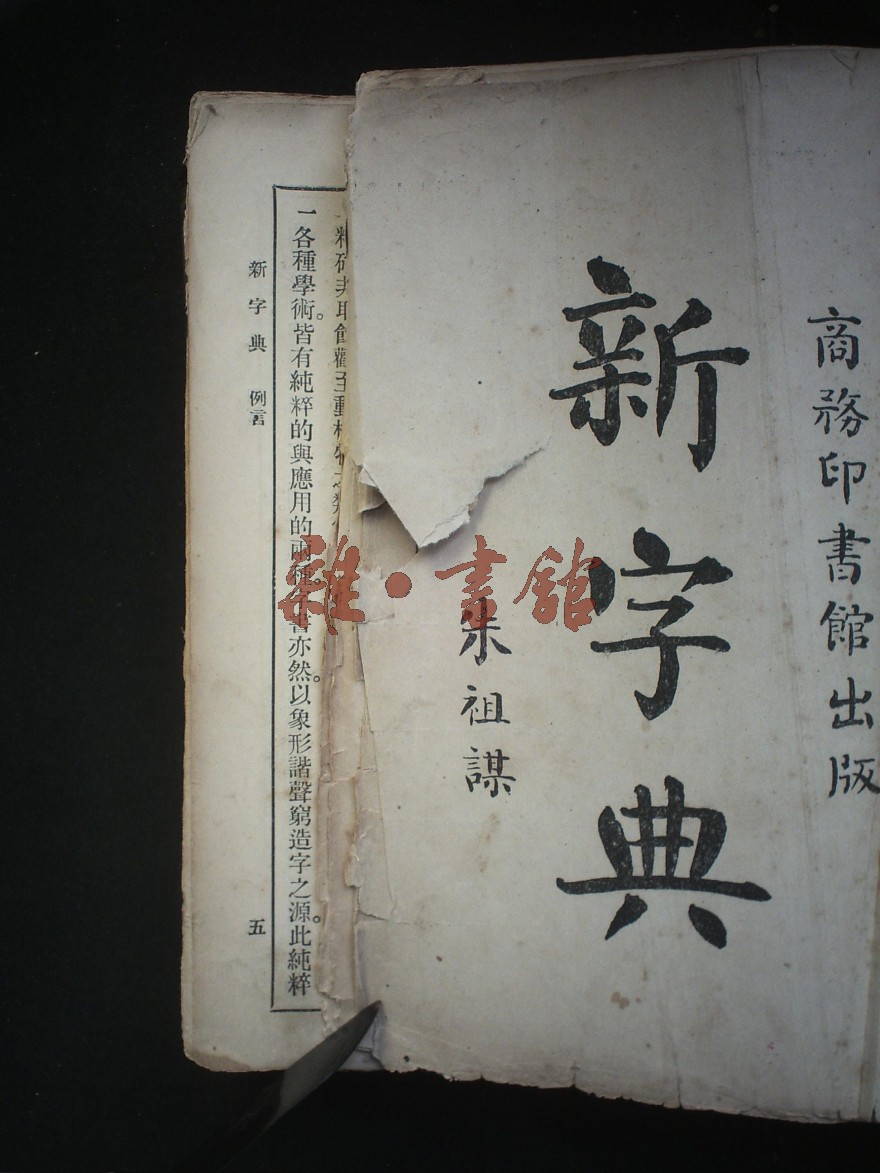 商務印書館出版
新字典
朱祖謀
雜·書館
一各種學術。皆有純粹的與應用的兩種。字書亦然。以象形諧聲窮造字之源。此純粹
新字典 例言 五